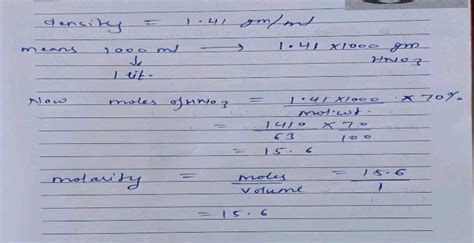 density = 1.41 gm/ml
means 1000 ml → 1.41 × 1000 gm
↓ HNO3
1 lit.
Now moles of HNO3 = 1.41 × 1000 / mol.wt. × 70%
= 1410 / 63 × 70 / 100
= 15.6
molarity = moles / Volume = 15.6 / 1
= 15.6